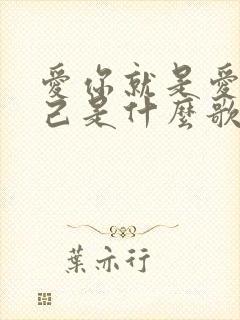 愛你就是愛
己是什麼歌
葉亦行